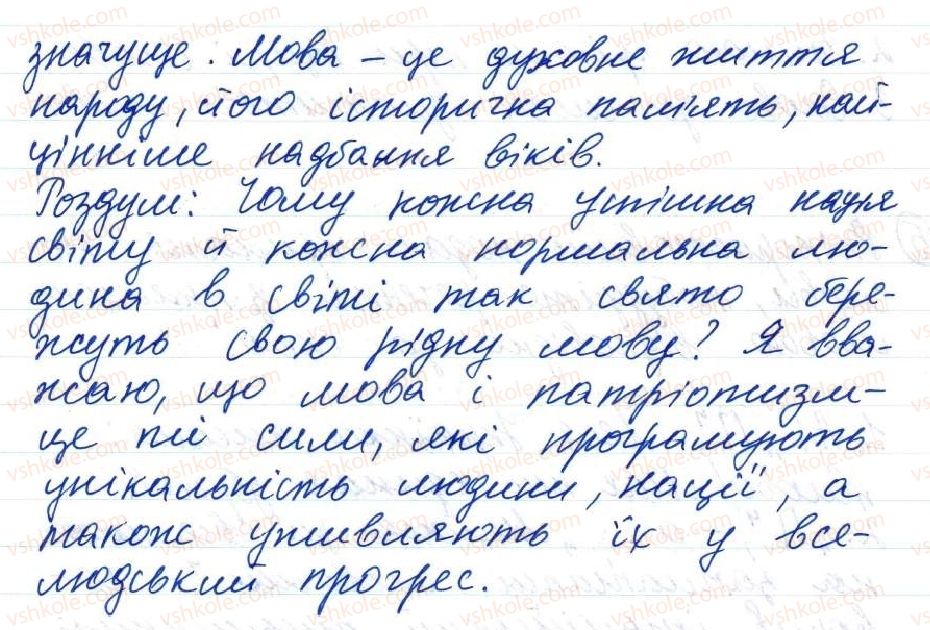 значуще. Мова – це духовне життя
народу, його історична пам'ять, най-
цінніше надбання віків.
Роздум: Чому кожна успішна нація
світу й кожна нормальна лю-
дина в світі так свято бере-
жуть свою рідну мову? Я вва-
жаю, що мова і патріотизм –
це ті сили, які програмують
унікальність людини, нації, а
також уживляють їх у все-
людський прогрес.